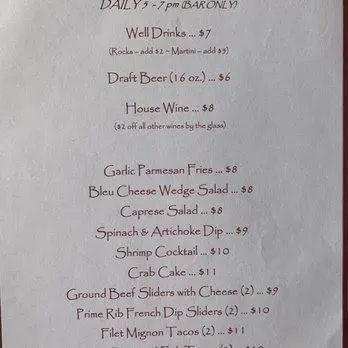 DAILY 5 - 7 pm (BAR ONLY)
Well Drinks ... $7
(Rocks – add $2 ~ Martini – add $3)
Draft Beer (16 oz.) ... $6
House Wine ... $8
($2 off all other wines by the glass)
Garlic Parmesan Fries ... $8
Bleu Cheese Wedge Salad ... $8
Caprese Salad ... $8
Spinach & Artichoke Dip ... $9
Shrimp Cocktail ... $10
Crab Cake ... $11
Ground Beef Sliders with Cheese (2) ... $9
Prime Rib French Dip Sliders (2) ... $10
Filet Mignon Tacos (2) ... $11